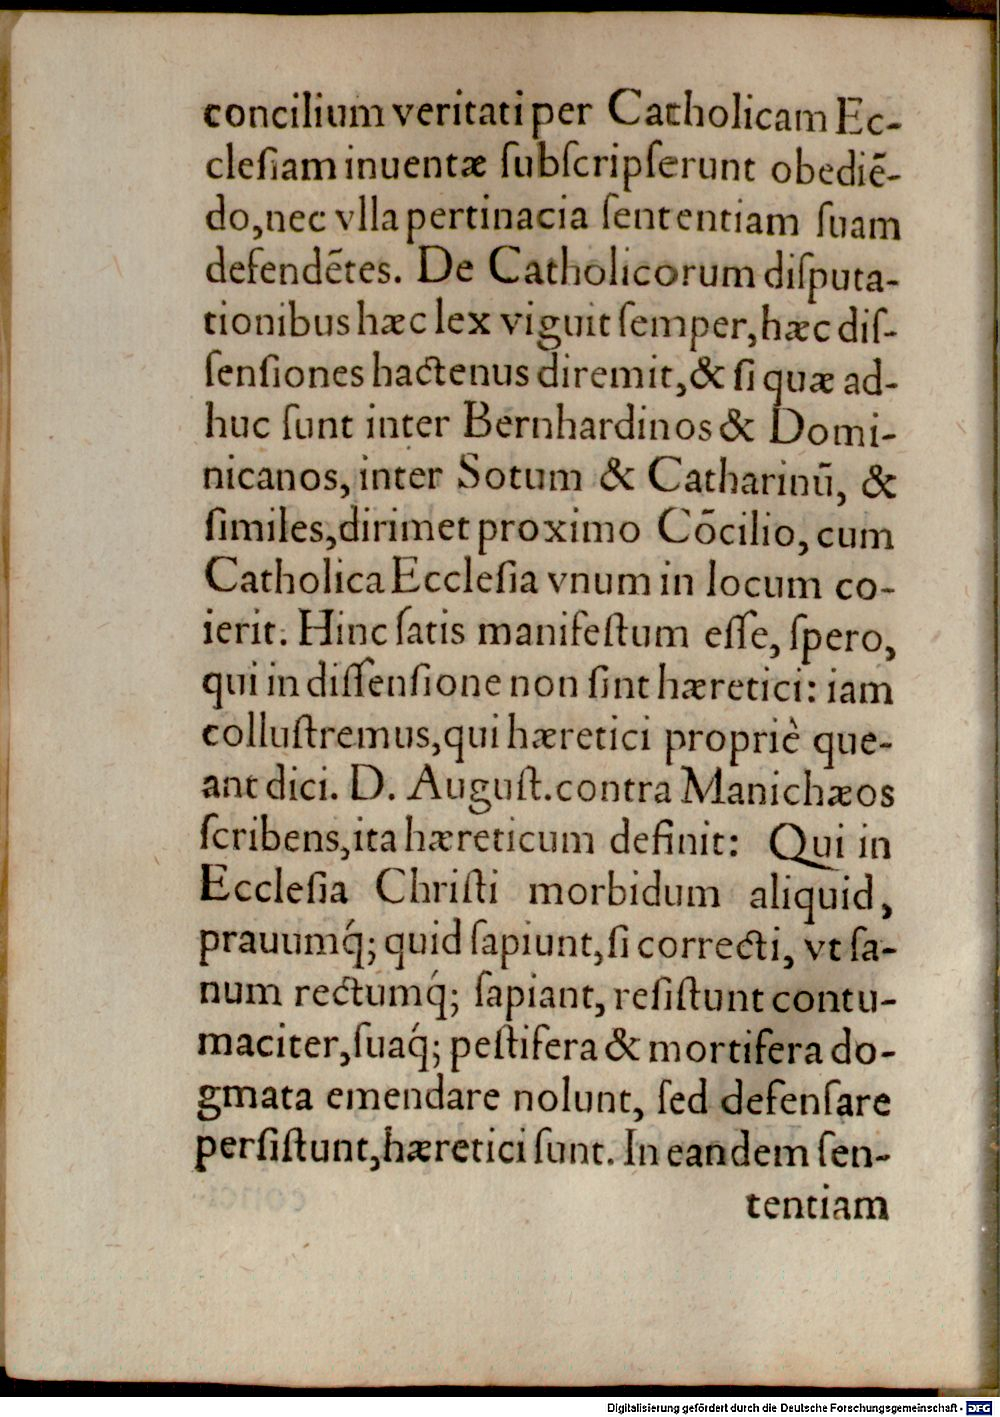 concilium veritati per Catholicam Ec-
cleſiam inuentæ ſubſcripſerunt obediẽ-
do, nec vlla pertinacia ſententiam ſuam
defendẽtes. De Catholicorum diſputa-
tionibus hæc lex viguit ſemper, hæc diſ-
ſenſiones hactenus diremit, & ſi quæ ad-
huc ſunt inter Bernhardinos & Domi-
nicanos, inter Sotum & Catharinũ, &
ſimiles, dirimet proximo Cõcilio, cum
Catholica Eccleſia vnum in locum co-
ierit. Hinc ſatis manifeſtum eſſe, ſpero,
qui in diſſenſione non ſint hæretici: iam
colluſtremus, qui hæretici propriè que-
ant dici. D. Auguſt. contra Manichæos
ſcribens, ita hæreticum definit: Qui in
Eccleſia Chriſti morbidum aliquid,
prauumq́; quid ſapiunt, ſi correcti, vt ſa-
num rectumq́; ſapiant, reſiſtunt contu-
maciter, ſuaq́; peſtifera & mortifera do-
gmata emendare nolunt, ſed defenſare
perſiſtunt, hæretici ſunt. In eandem ſen-
tentiam
Digitalisierung gefördert durch die Deutsche Forschungsgemeinschaft - DFG